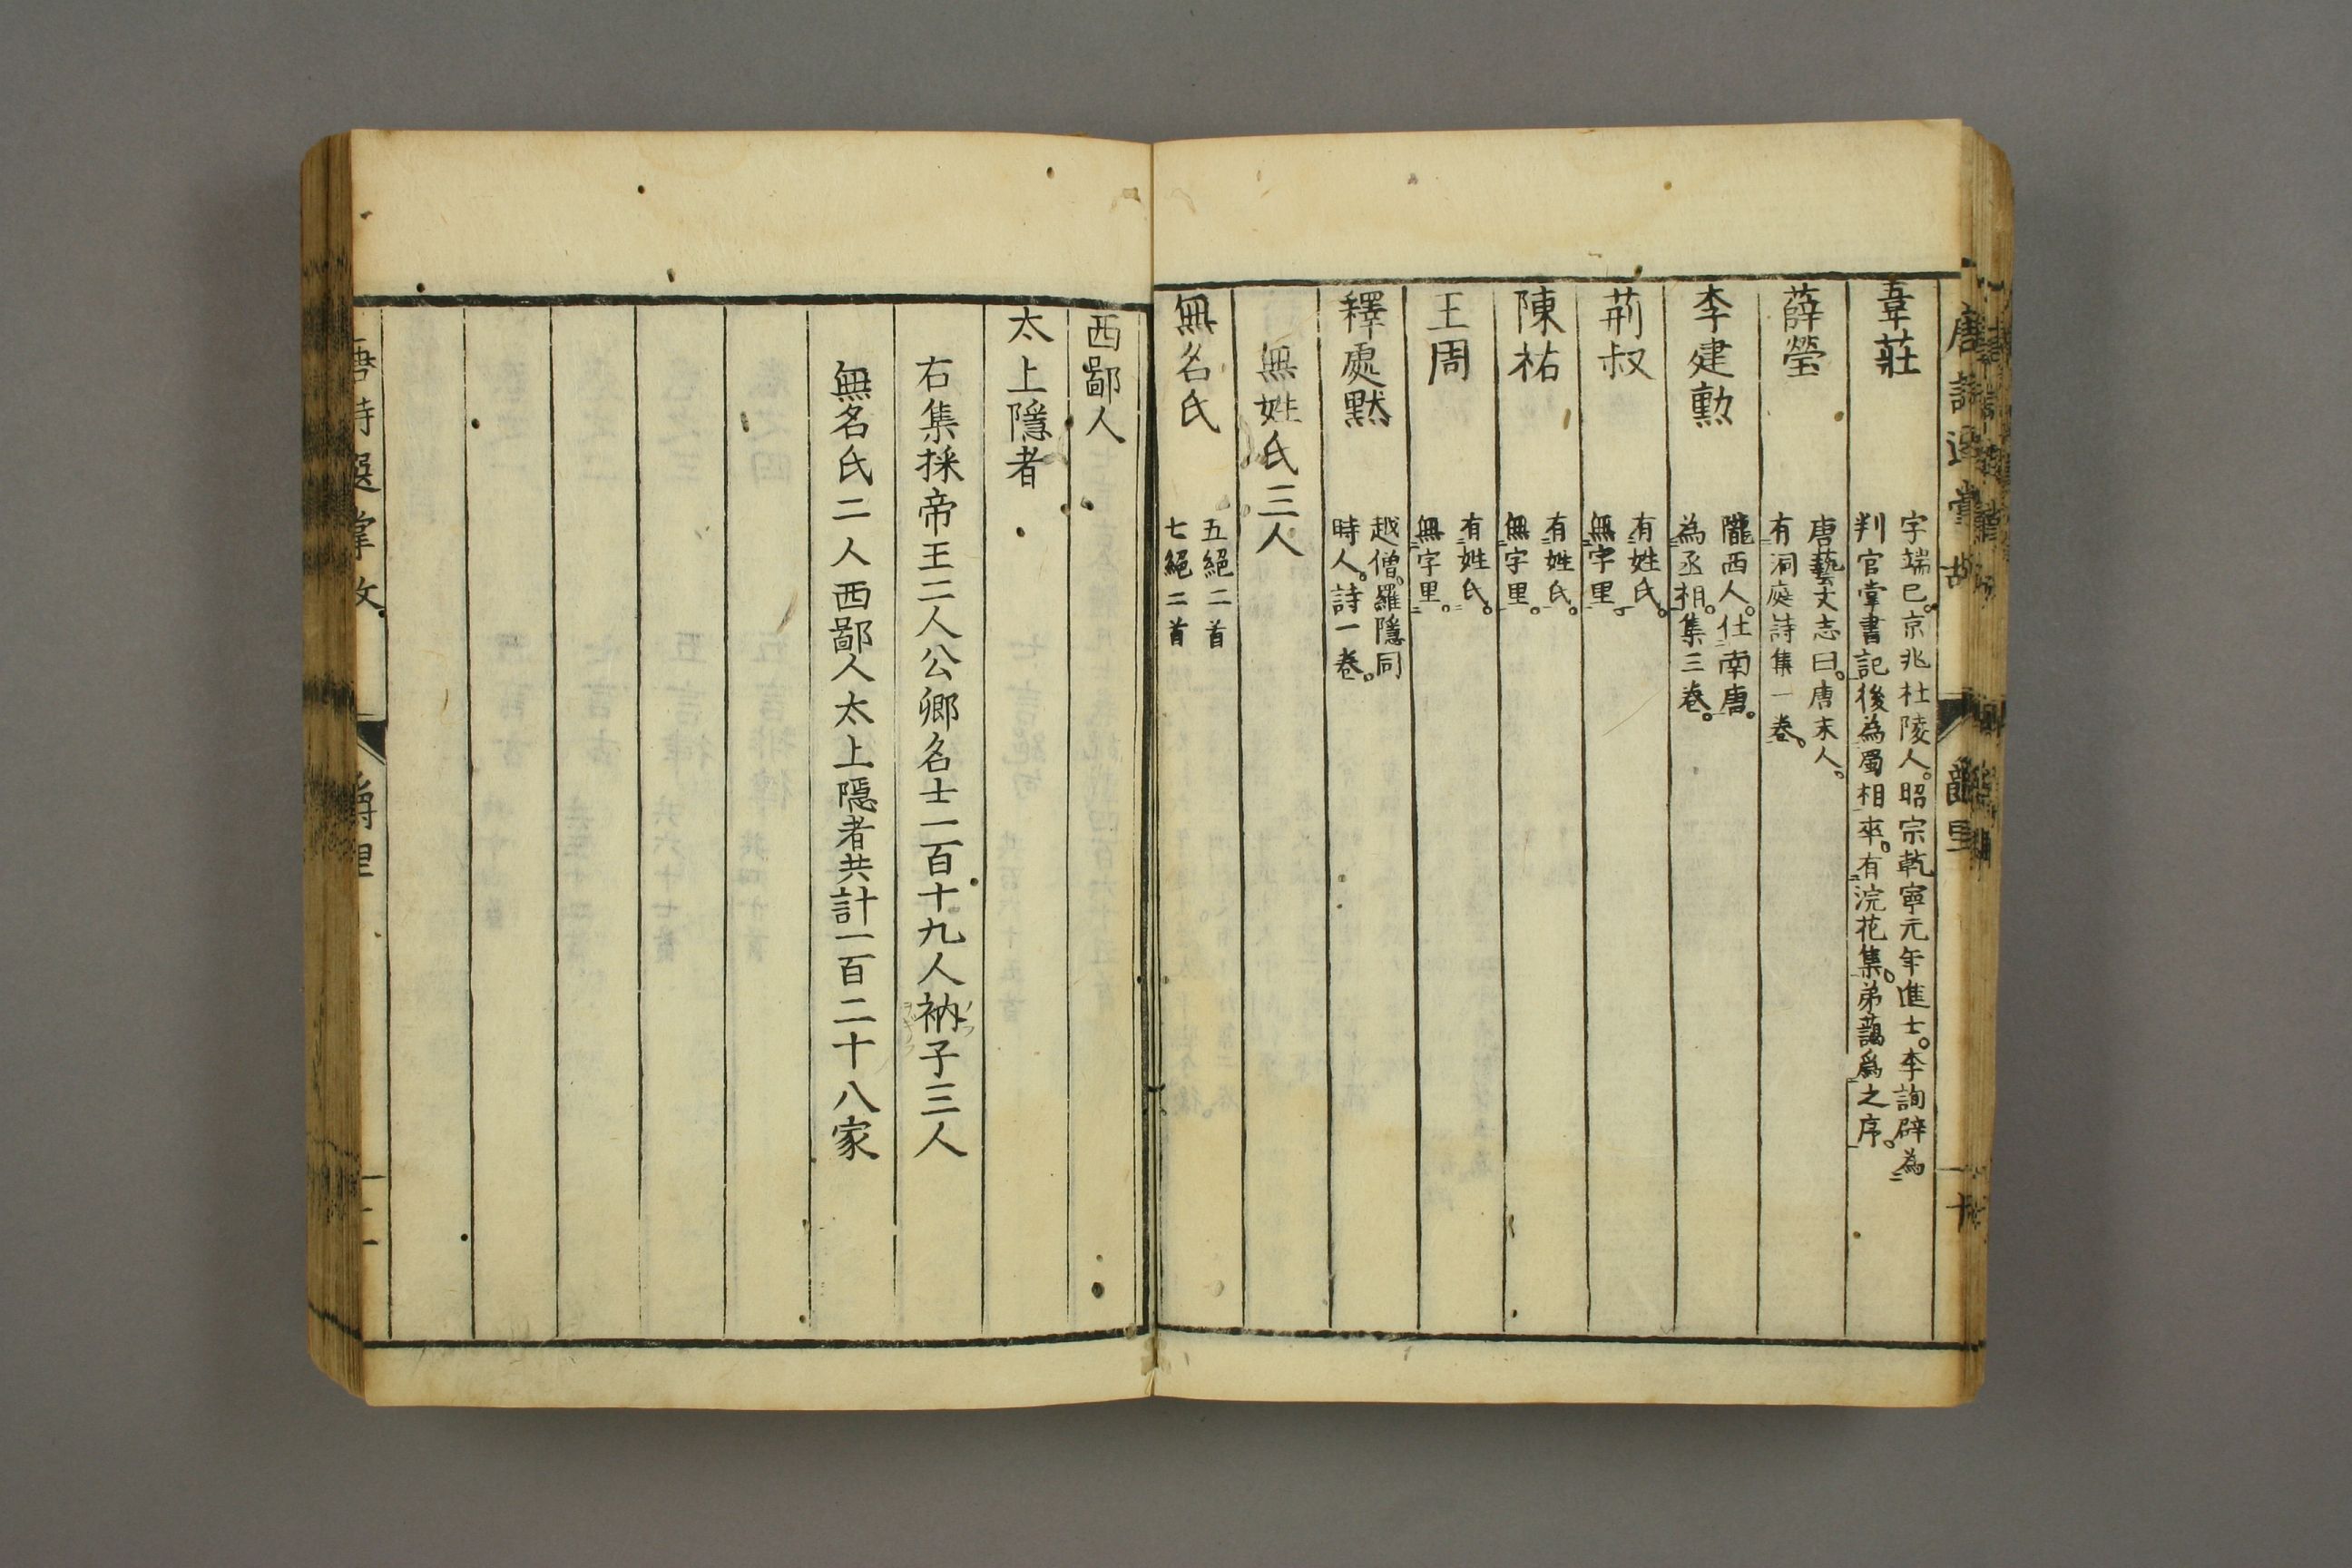 韋莊
字端已。京兆杜陵人。昭宗乾寧元年進士。李詢辟為
判官掌書記後為蜀相卒。有浣花集。弟藹為之序。
薛瑩
唐藝文志曰。唐末人。
有洞庭詩集一卷。
李建勲
隴西人。仕南唐。
為丞相。集三卷。
荊叔
有姓氏。
無字里。
陳祐
有姓氏。
無字里。
王周
有姓氏。
無字里。
釋處默
越僧。羅隱同
時人。詩一卷。
無姓氏三人
無名氏
五絕二首
七絕二首
西鄙人
太上隱者
右集採帝王二人公卿名士一百十九人衲子三人
無名氏二人西鄙人太上隱者共計一百二十八家
唐詩選掌故
爵里